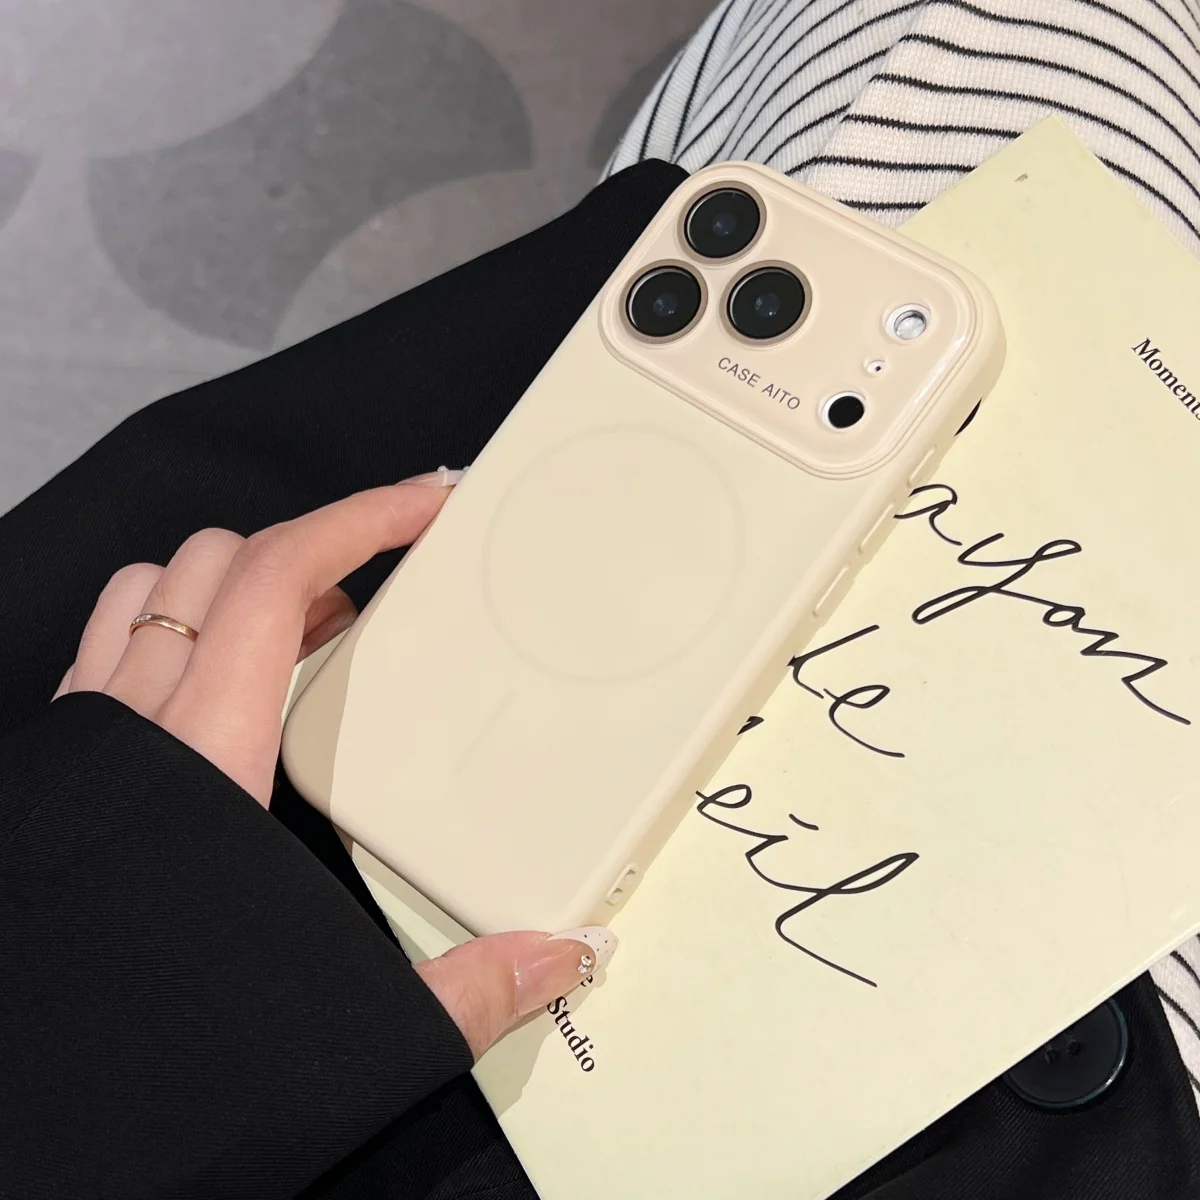 CASE AITO
Moments
ayon
de
eil
e
Studio